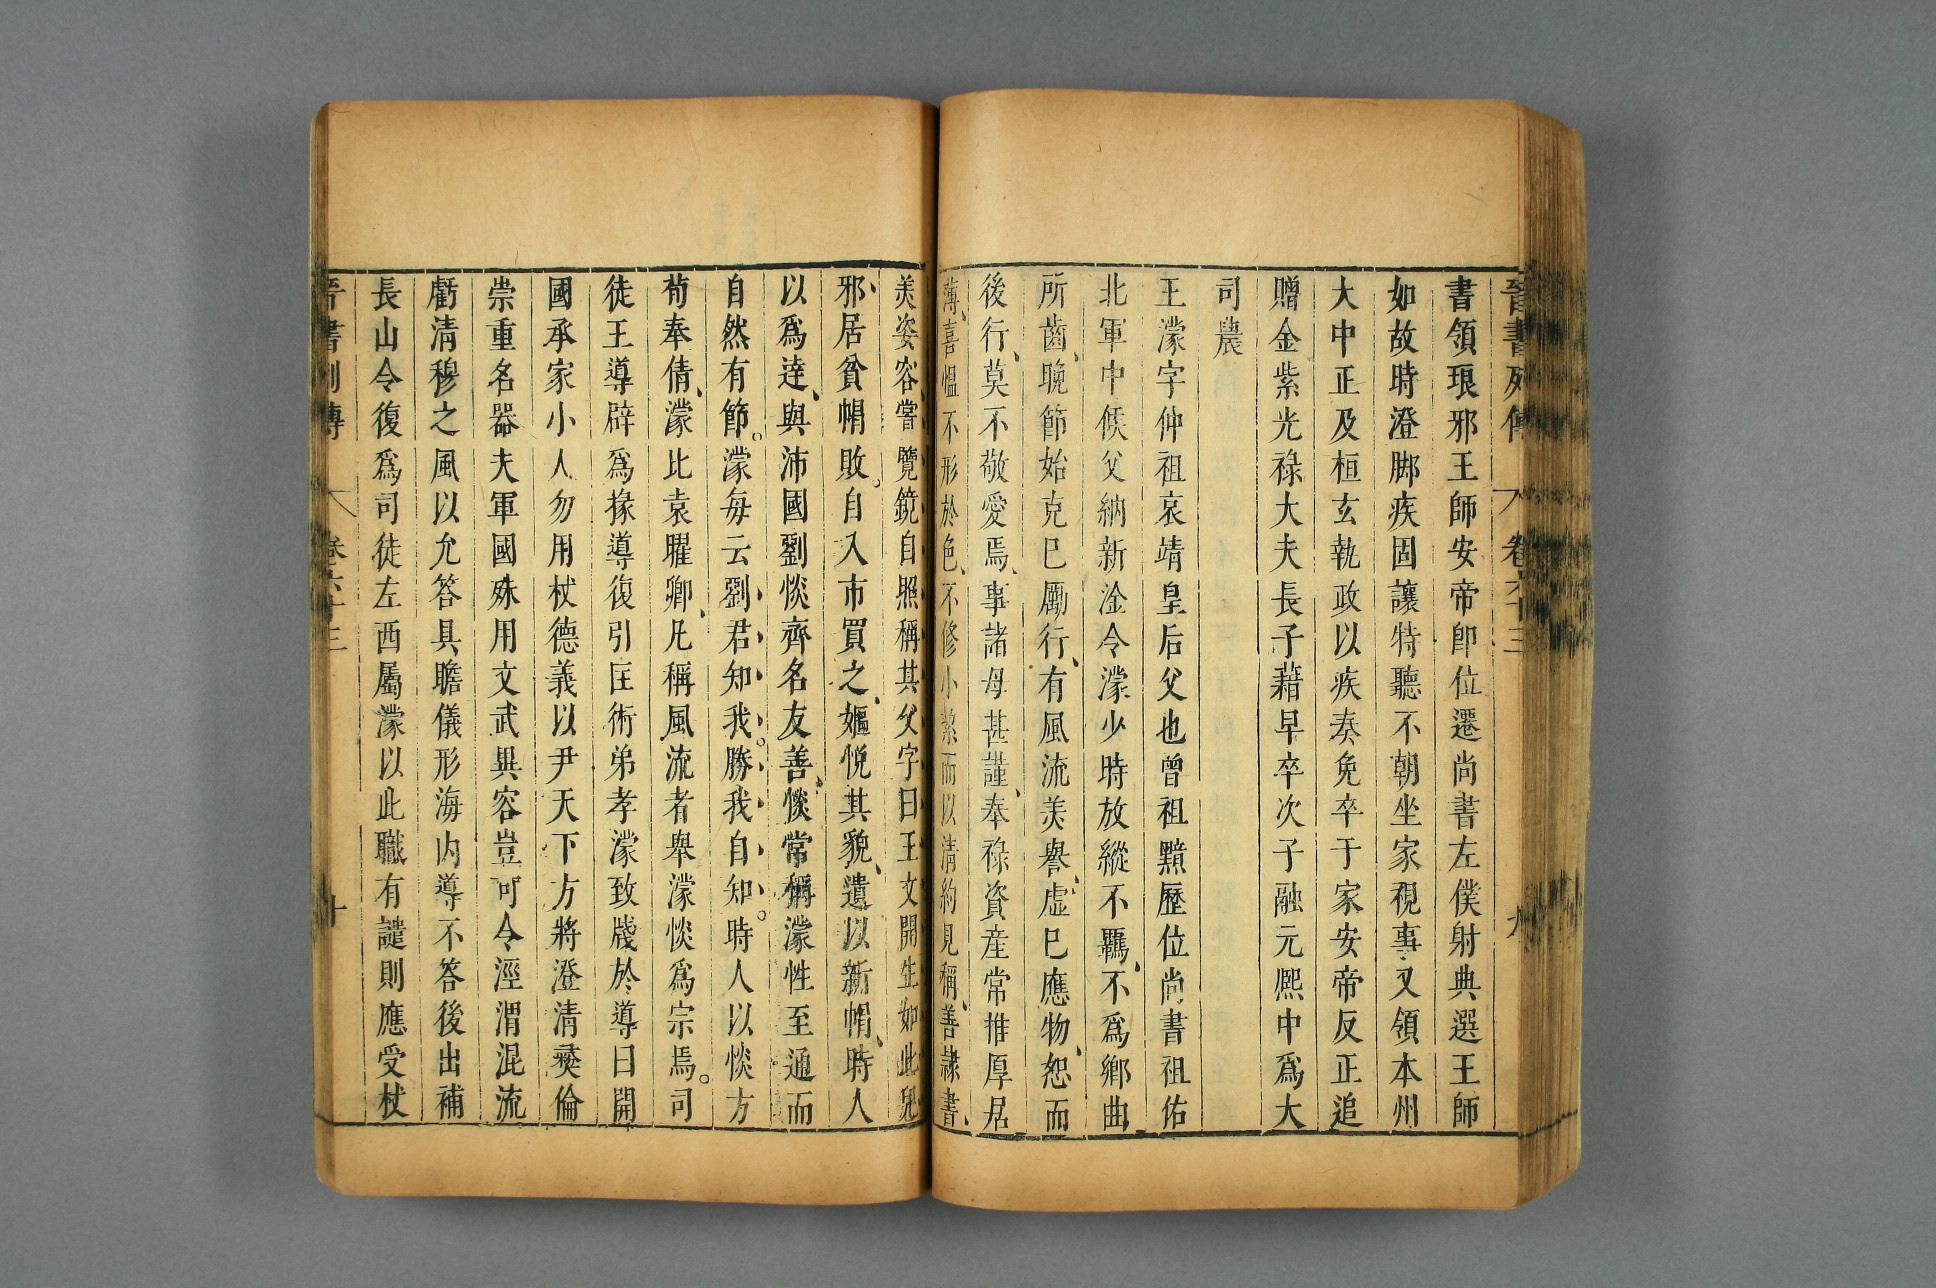 晉書列傳 卷六十三 九
書領琅邪王師安帝卽位遷尚書左僕射典選王師
如故時澄脚疾固讓特聽不朝坐家視事又領本州
大中正及桓玄執政以疾奏免卒于家安帝反正追
贈金紫光祿大夫長子藉早卒次子融元熙中爲大
司農
王濛字仲祖哀靖皇后父也曾祖黯歷位尚書祖佑
北軍中候父納新淦令濛少時放縱不羈、不爲鄉曲
所齒、晚節始克已勵行、有風流美譽、虛已應物、恕而
後行、莫不敬愛焉、事諸母甚謹、奉祿資産常推厚居
薄、喜慍不形於色、不修小潔而以清約見稱、善隷書、
美姿容、嘗覽鏡自照稱其父字曰王文開生如此兒
邪、居貧帽敗。自入市買之、嫗悅其貌、遺以新帽、時人
以爲達、與沛國劉惔齊名友善、惔常稱濛性至通而
自然有節。濛每云劉君知我。勝我自知。時人以惔方
荀奉倩、濛比袁曜卿、凡稱風流者舉濛惔爲宗焉。司
徒王導辟爲掾導復引匡術弟孝濛致牋於導曰開
國承家小人勿用杖德義以尹天下方將澄清彝倫
崇重名器夫軍國殊用文武異容豈可令涇渭混流
虧清穆之風以允答具瞻儀形海内導不答後出補
長山令復爲司徒左西屬濛以此職有譴則應受杖
晉書列傳 卷六十三 十